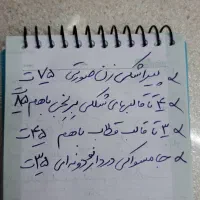 پیراشکی زن صورتی ۷۵ت
۴ تا قالبهای شکلی برنجی باهم ۸۵ت
۳ تا قالب قطاب باهم ۴۵ت
جا مسواکی دردار خونه ای ۳۵ت